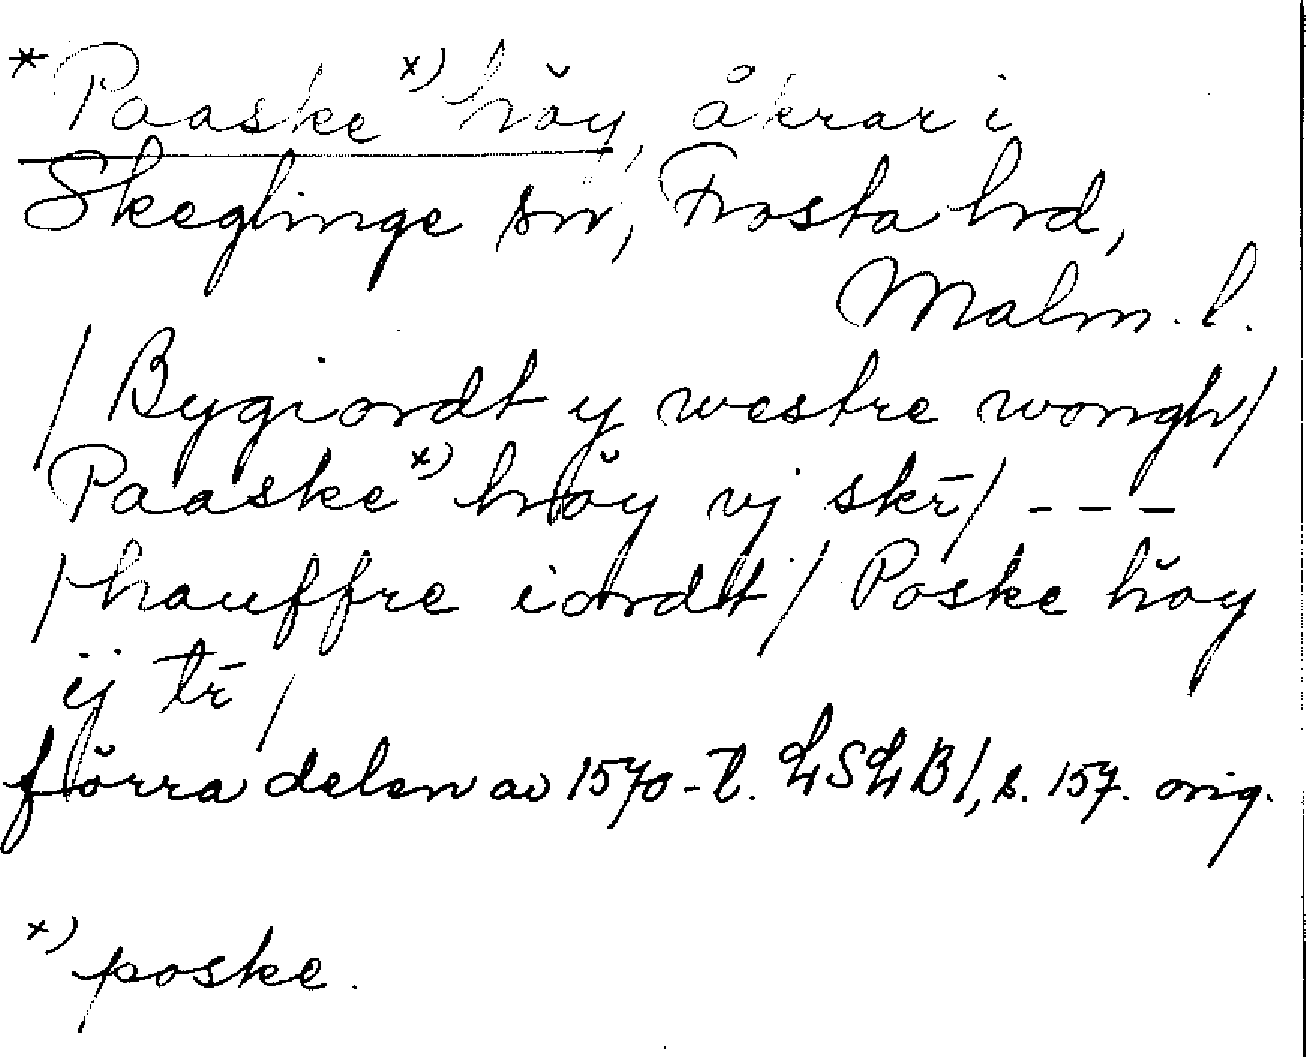 * Paaske x) hŏy, åkrar i
Skeglinge sn, Frosta hd,
Malm. l.
/ Bygiordt y westre wongh /
Paaske x) hŏy vj skr̄ / - - -
/ hauffre iordt / Poske hŏy
ij tr̄ /
förra delen av 1570-t. LSLB 1, s. 157. orig.
x) poske.